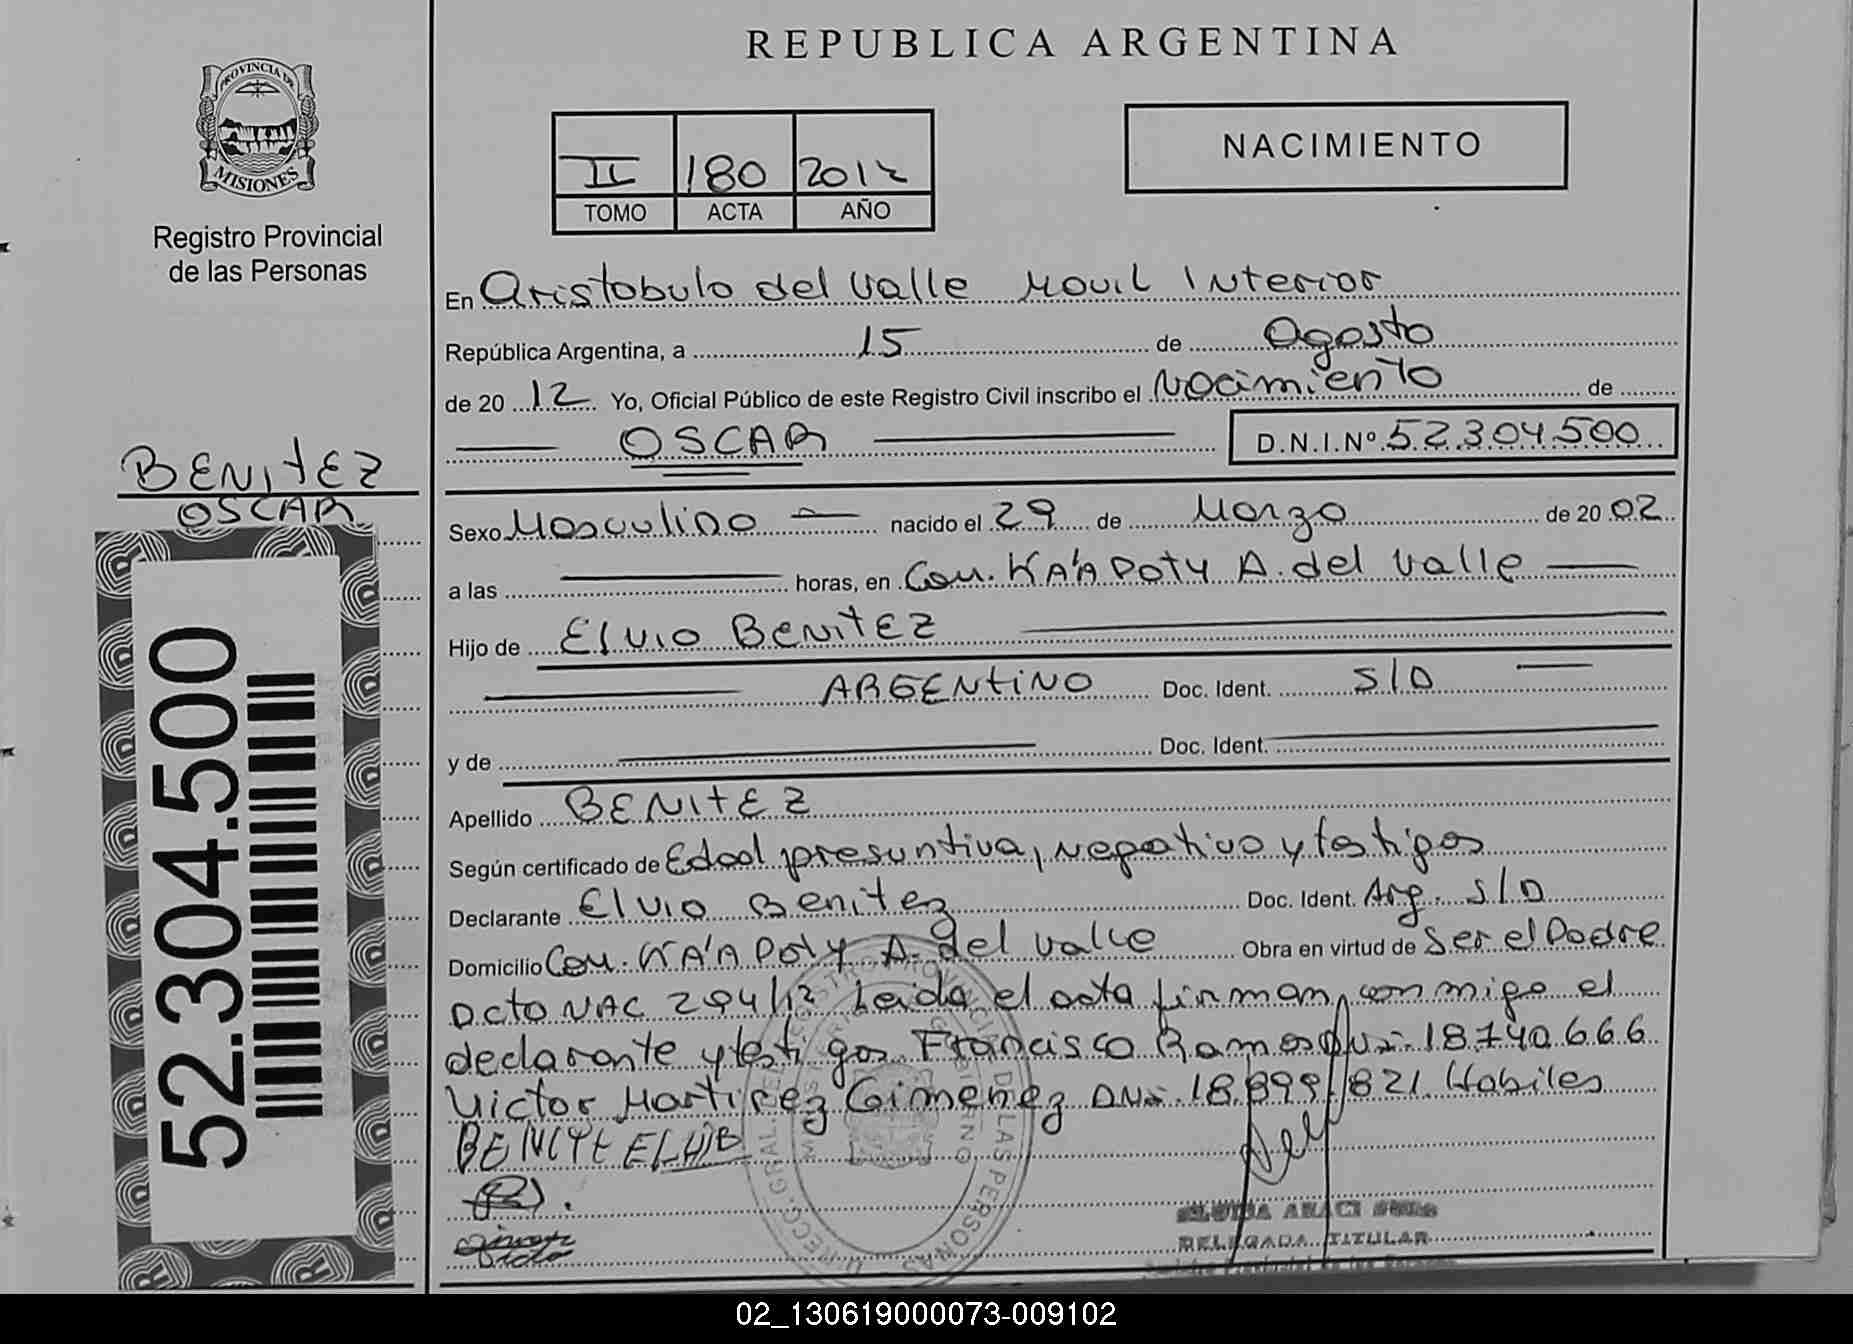 REPUBLICA ARGENTINA
PROVINCIA DE
MISIONES
Registro Provincial
de las Personas
II 180 2012
TOMO ACTA AÑO
NACIMIENTO
En Aristobulo del Valle Movil Interior
República Argentina, a 15 de Agosto
de 20 12 Yo, Oficial Público de este Registro Civil inscribo el Nacimiento de
OSCAR D.N.I.Nº 52.304.500
BENITEZ
OSCAR
52.304.500
Sexo Masculino nacido el 29 de Marzo de 20 02
a las horas, en Com. KA'A POTY A. del Valle
Hijo de Elvio BenitEZ
ARGENTINO Doc. Ident. S/D
y de Doc. Ident.
Apellido BENITEZ
Según certificado de Edad presuntiva, negativo y testigos
Declarante Elvio Benitez Doc. Ident. Arg. S/D
Domicilio Com. KA'A POTY A. del Valle Obra en virtud de Ser el Padre
Acto NAC 294/12 Leida el acta firman conmigo el
declarante y testigos Francisco Ramos DNI: 18.740.666
Victor Martinez Gimenez DNI: 18.899.821 Habiles
BENITE ELVIO
DELEGADA TITULAR
02_130619000073-009102